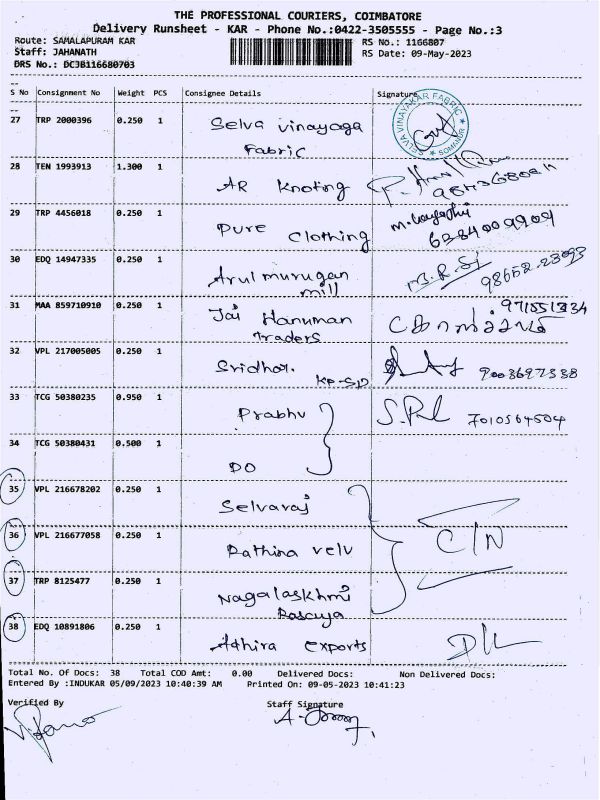 THE PROFESSIONAL COURIERS, COIMBATORE
Delivery Runsheet - KAR - Phone No.:0422-3505555 - Page No.:3
Route: SAMALAPURAM KAR RS No.: 1166807
Staff: JAHANATH RS Date: 09-May-2023
DRS No.: DCJB116680703
S No Consignment No Weight PCS Consignee Details Signature
27 TRP 2000396 0.250 1 Selva vinayaga
Fabric
SELVA VINAYAKAR FABRIC
SOMANUR
28 TEN 1993913 1.300 1 AR Knoting
29 TRP 4456018 0.250 1 Pure Clothing
6384009904
30 EDQ 14947335 0.250 1 Arul murugan
mill
98652-23093
31 MAA 859710910 0.250 1 Jai Hanuman
Traders
32 VPL 217005005 0.250 1 Sridhar.
9003697338
33 TCG 50380235 0.950 1 Prabhu
7010564504
34 TCG 50380431 0.500 1 DO
35 VPL 216678202 0.250 1 Selvaraj
36 VPL 216677058 0.250 1 Rathina velu C/N
37 TRP 8125477 0.250 1 Nagalaskhmi
38 EDQ 10891806 0.250 1 Adhira exports
Total No. Of Docs: 38 Total COD Amt: 0.00 Delivered Docs: Non Delivered Docs:
Entered By :INDUKAR 05/09/2023 10:40:39 AM Printed On: 09-05-2023 10:41:23
Verified By Staff Signature